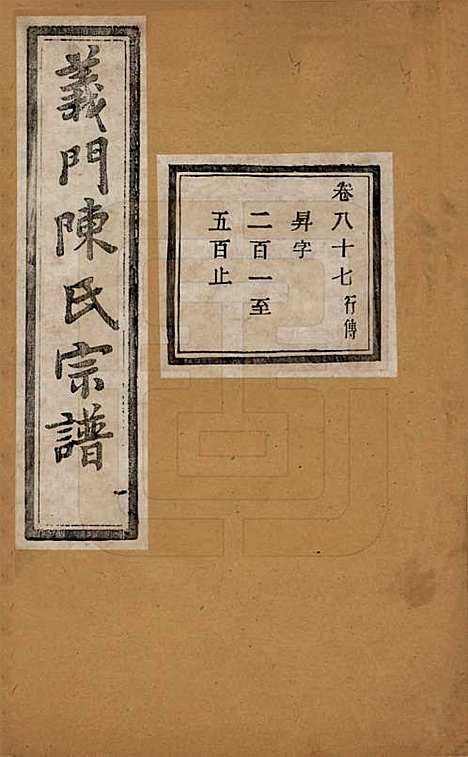 義門陳氏宗譜
卷八十七 行傳
昇字
二百一至
五百止